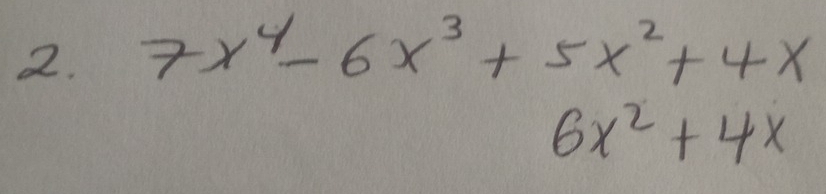 2. 7x⁴ - 6x³ + 5x² + 4x
6x² + 4x